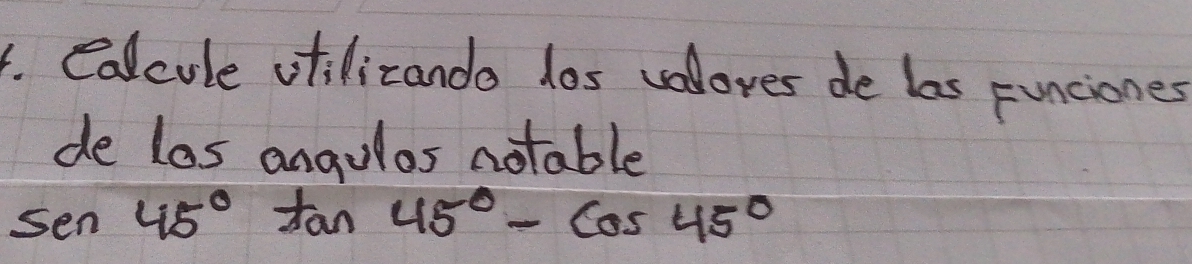 1. Calcule utilizando los valores de las Funciones
de los angulos notable
Sen 45° tan 45° - Cos 45°